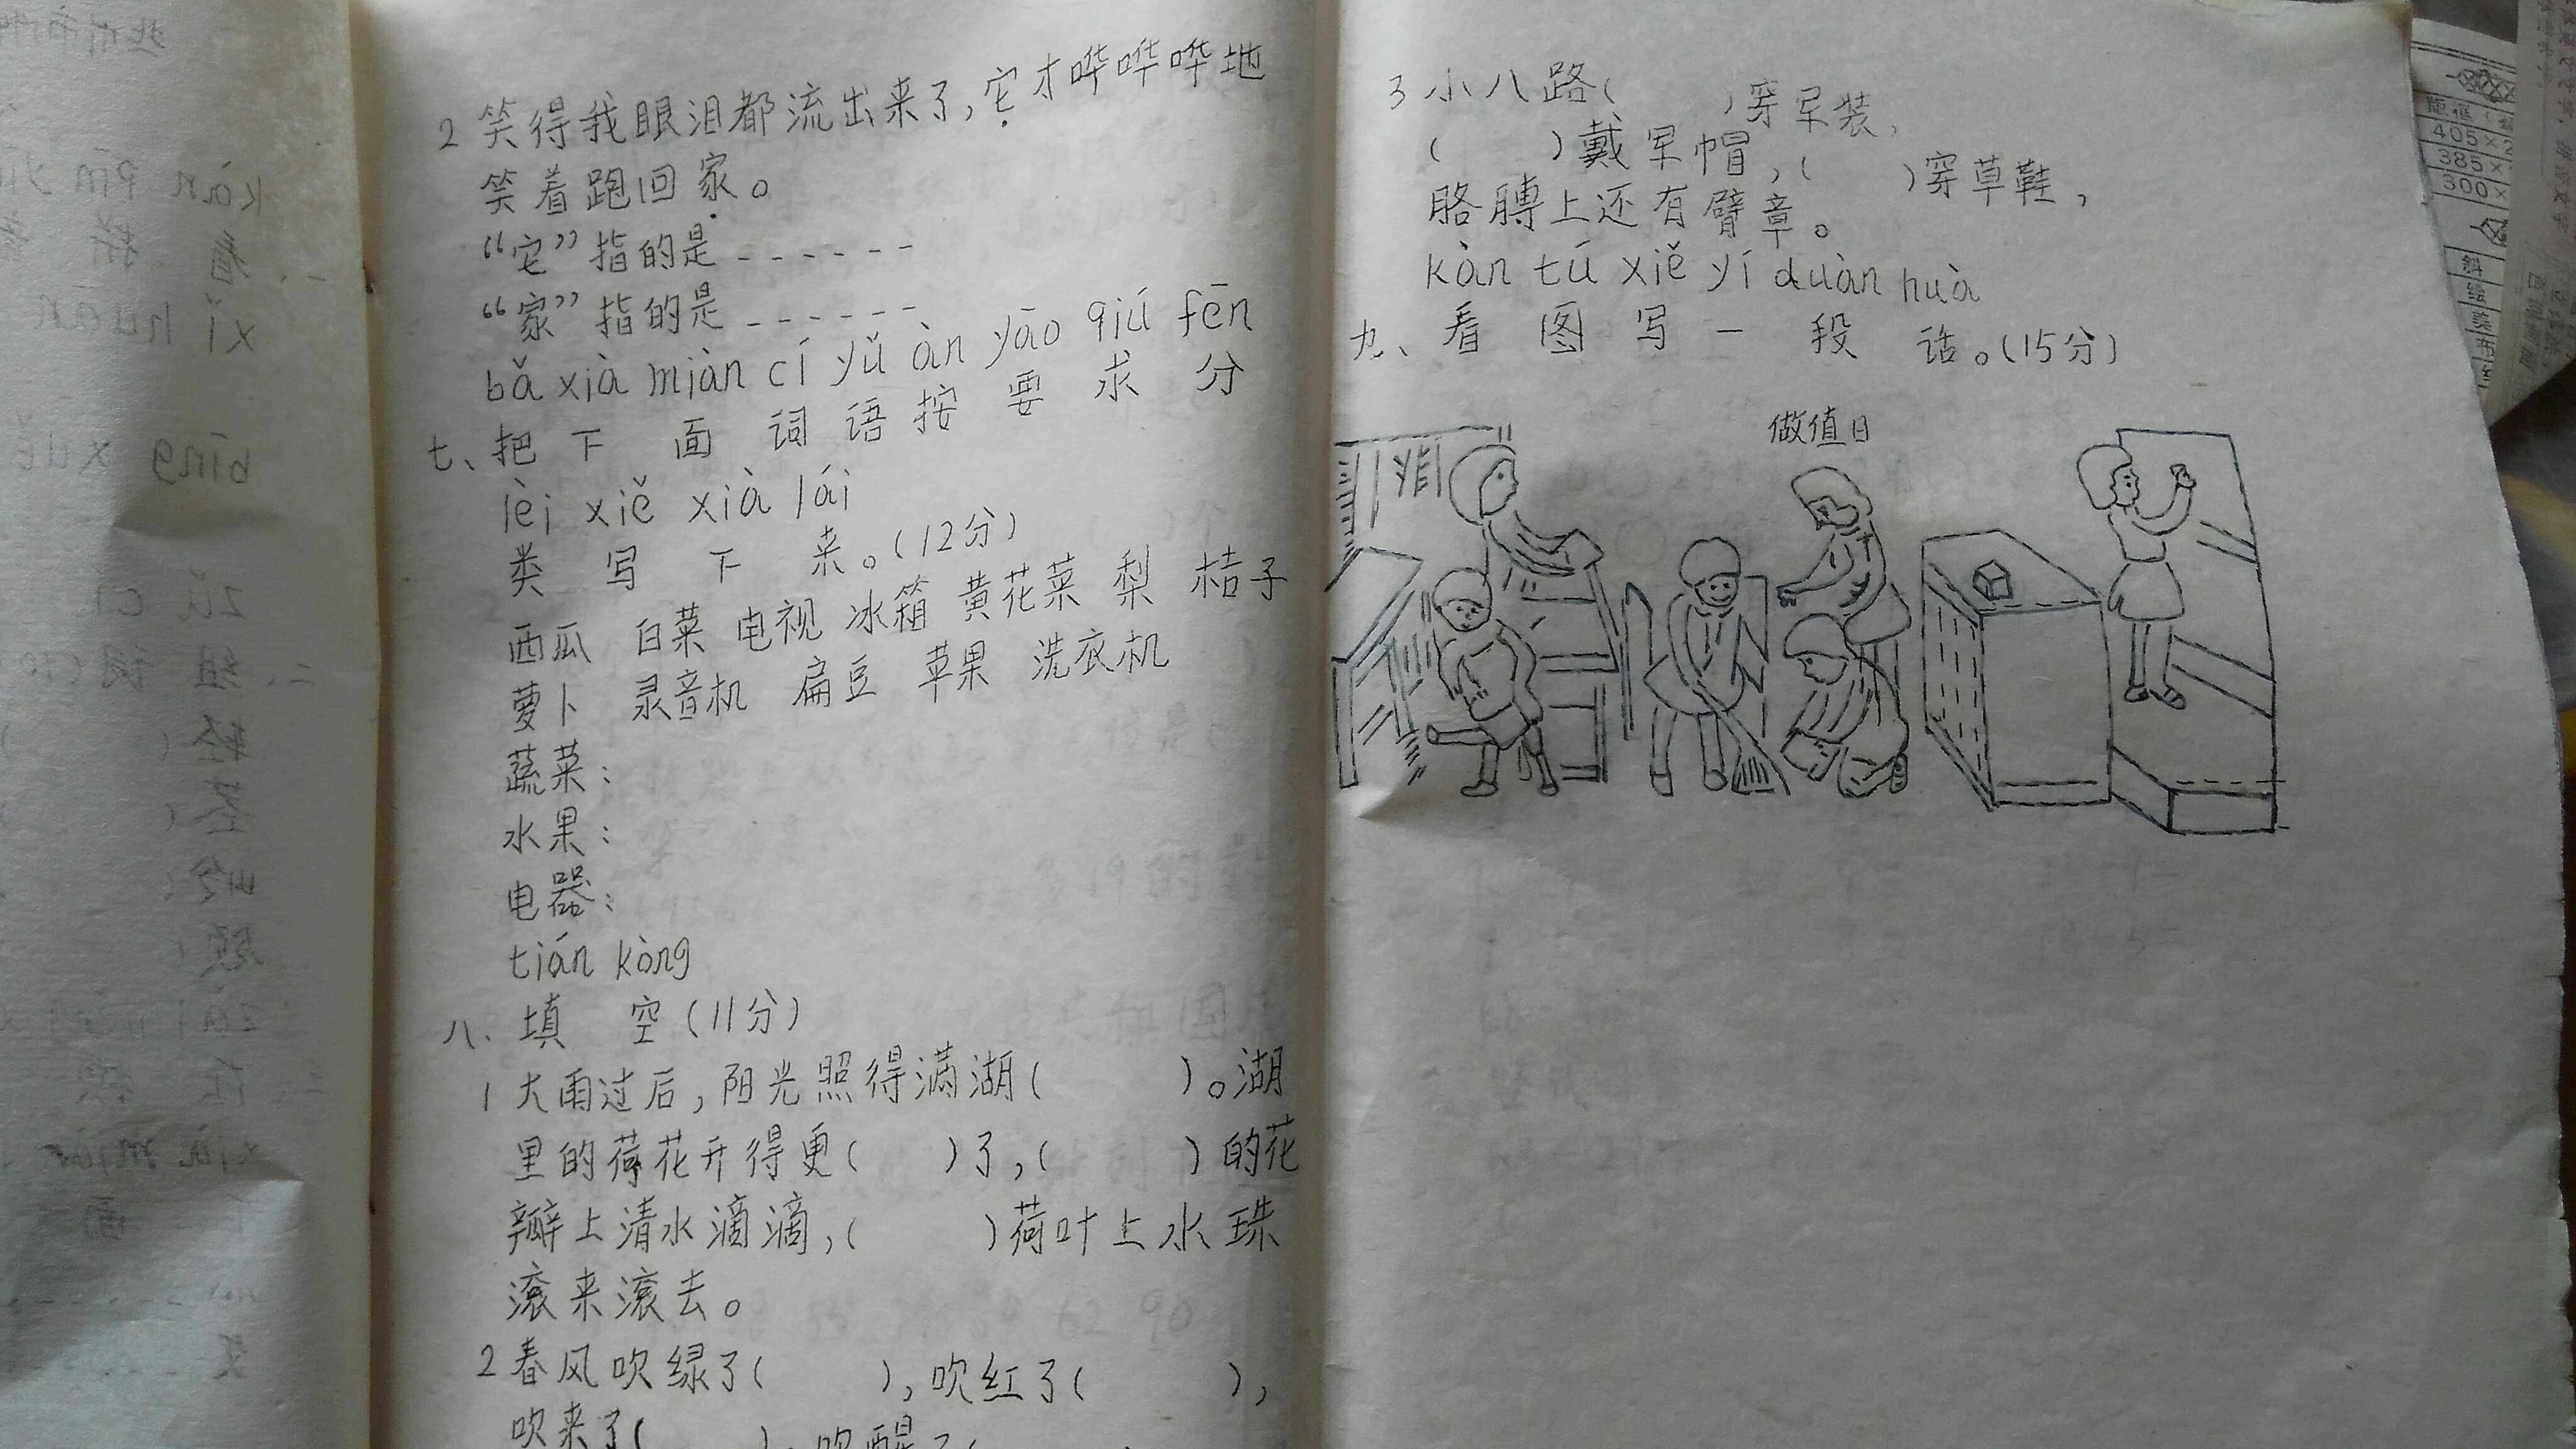 2 笑得我眼泪都流出来了,它才哗哗哗地
笑着跑回家。
“它”指的是------
“家”指的是------
bǎ xià miàn cí yǔ àn yāo qiú fēn
七、把下面词语按要求分
lèi xiě xià lái
类写下来。(12分)
西瓜 白菜 电视 冰箱 黄花菜 梨 桔子
萝卜 录音机 扁豆 苹果 洗衣机
蔬菜:
水果:
电器:
tián kòng
八、填空(11分)
1 大雨过后,阳光照得满湖( )。湖
里的荷花开得更( )了,( )的花
瓣上清水滴滴,( )荷叶上水珠
滚来滚去。
2 春风吹绿了( ),吹红了( ),
吹来了( ),吹醒了(
3 小八路( )穿军装,
( )戴军帽,( )穿草鞋,
胳膊上还有臂章。
kàn tú xiě yí duàn huà
九、看图写一段话。(15分)
做值日
版框
405×2
385×
300×
斜
绘
kàn pīn yīn
一、看拼
xǐ huān
bīng xuě
zǔ cí
二、组词(10
轻(
xià miàn